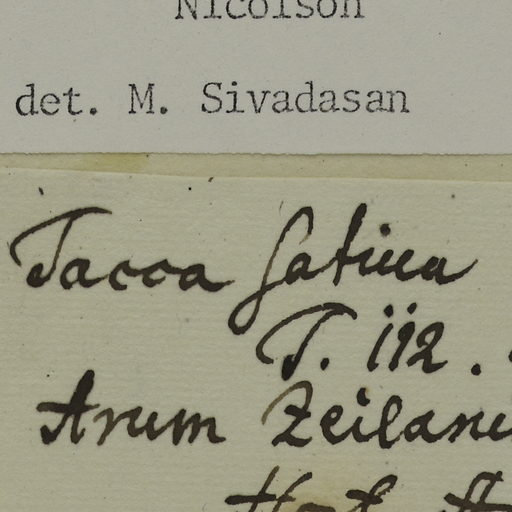 Nicolson
det. M. Sivadasan
Tacca sativa
T. 112.
Arum Zeilani
Hort. A